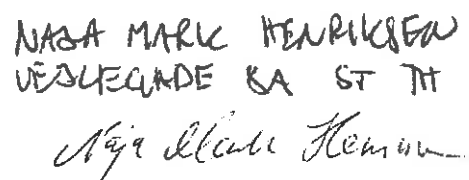 NAJA MARK HENRIKSEN
VEJLEGADE 8A ST TH
Naja Mark Henriksen